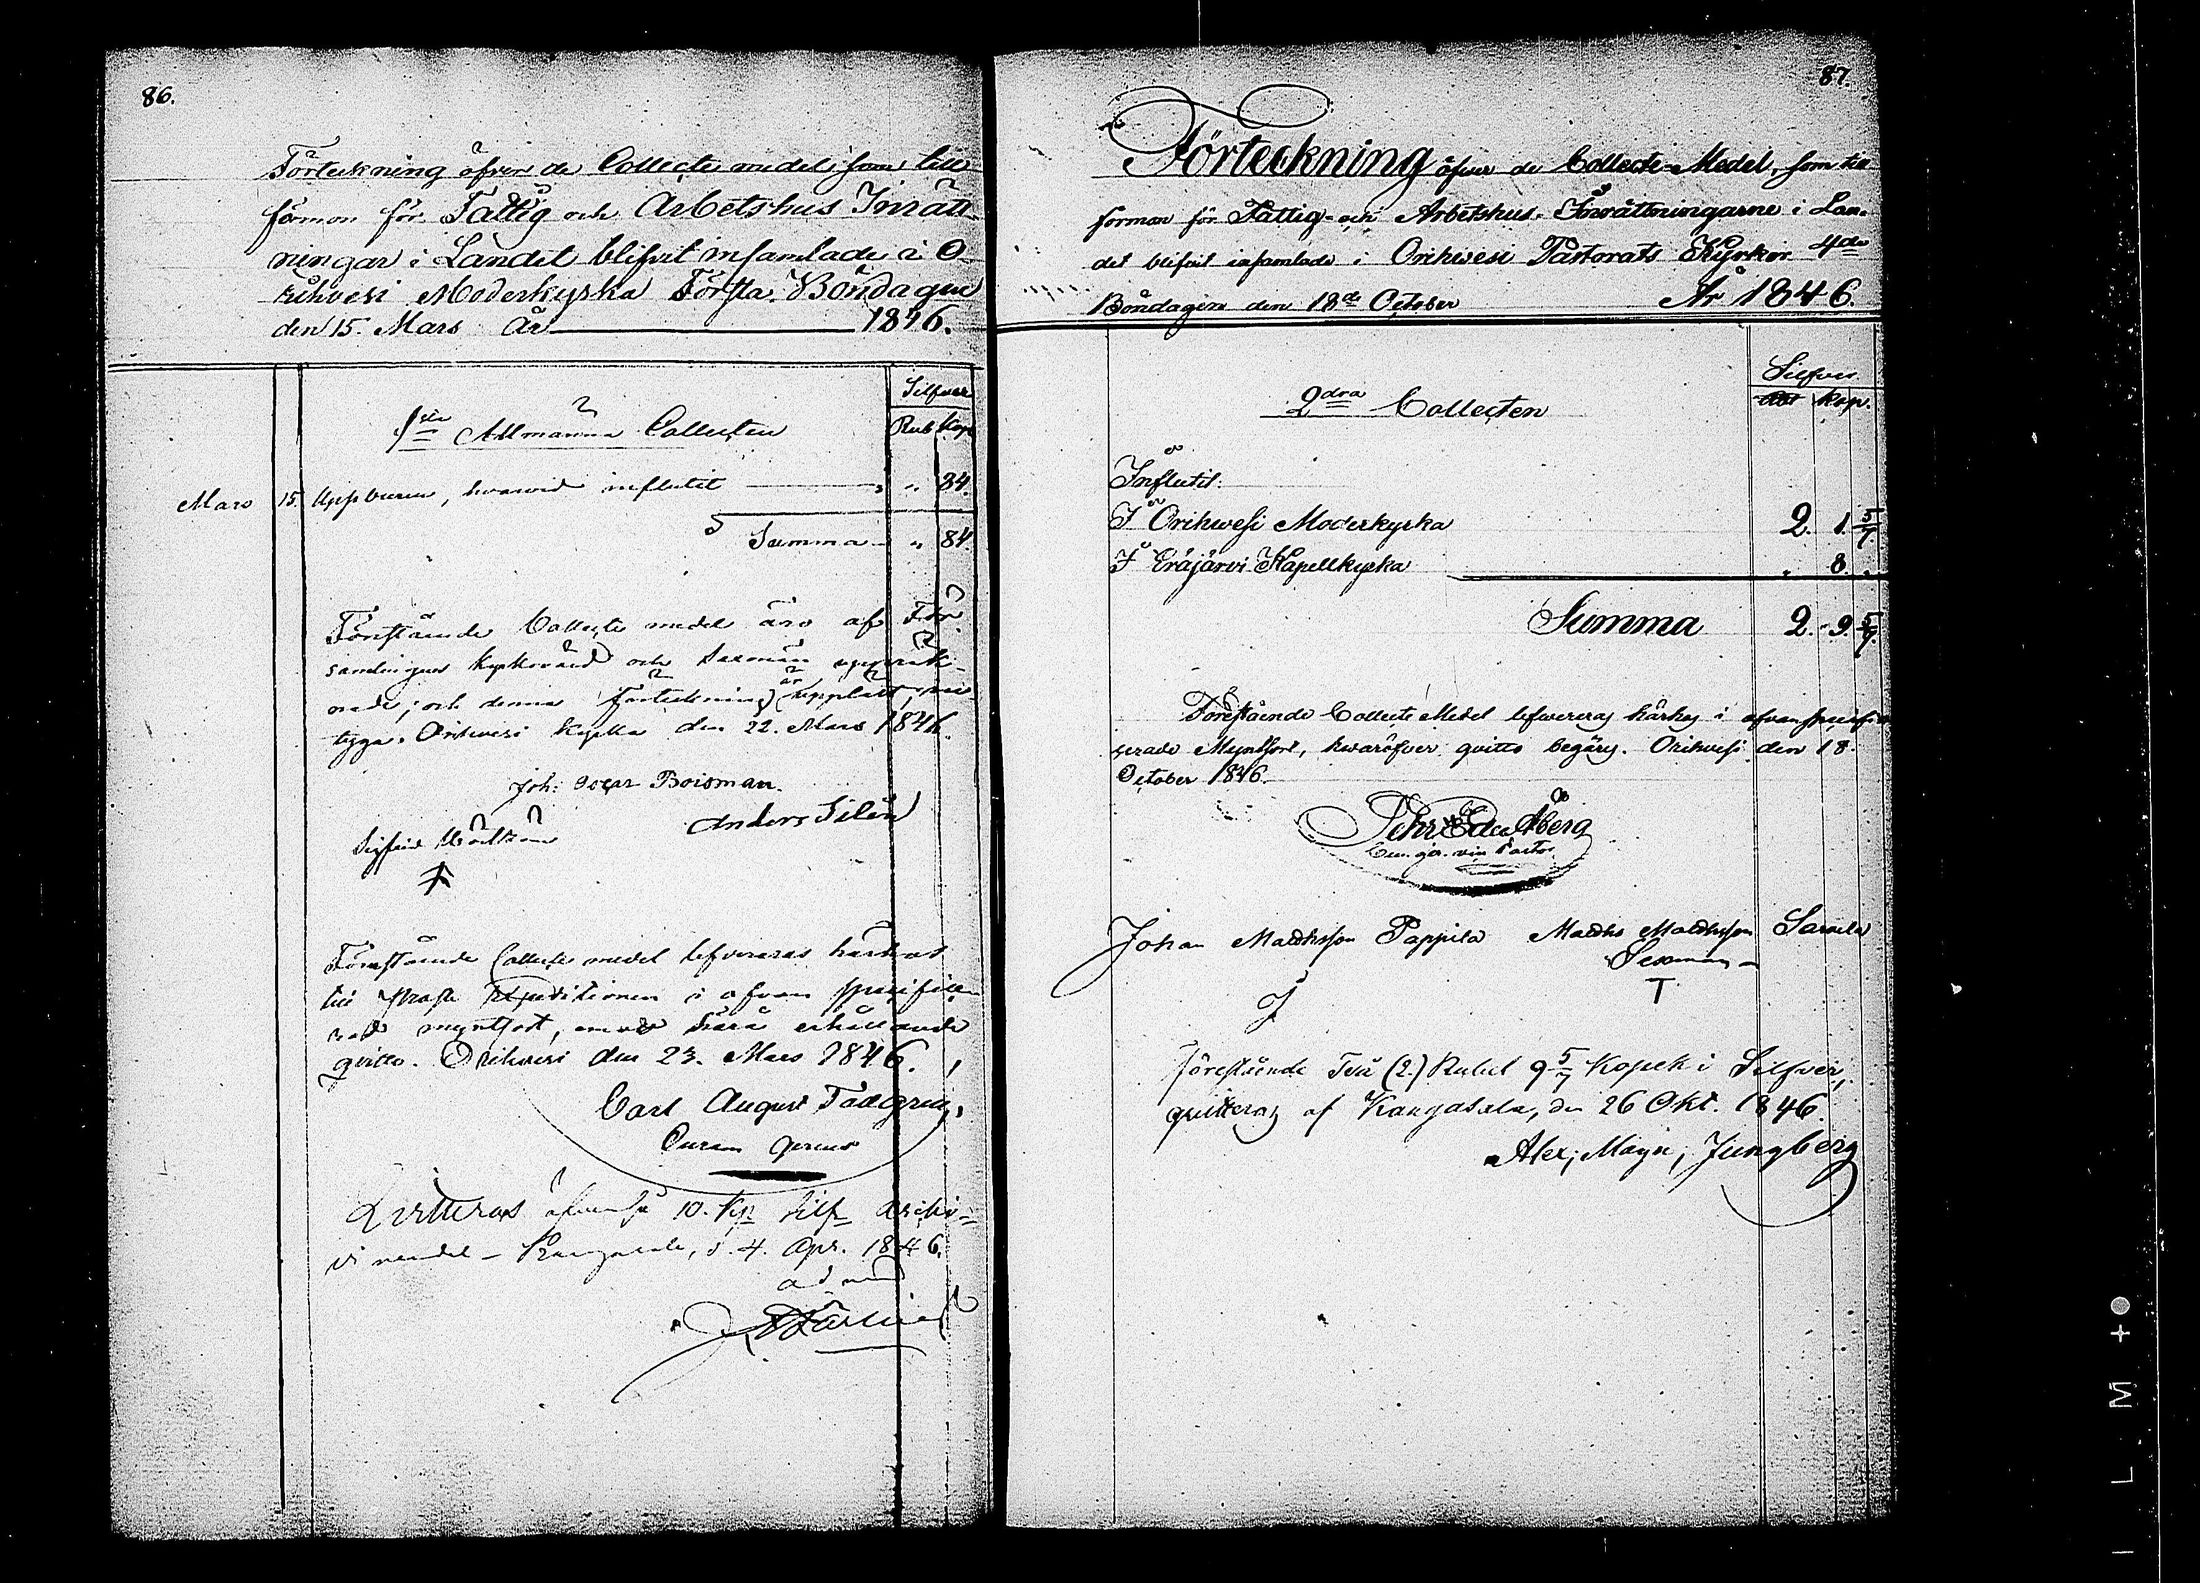 86.
Förteckning öfver de Collecte medel som till
förmon för Fattig och Arbetshus Inrätt-
ningar i Landet blifvit insamlade i O-
rihvesi Moderkyrka Första Böndagen
den 15. Mars År 1846.
Silfver
1sta Allmänna Collecten
Rub. Kop.
Mars 15. Uppburen, hvarvid influtit " 84.
Summa " 84.
Förestående Collecte medel äro af För-
samlingens kyrkovärd och Sexman uppräk-
nade, och denna förteckning är uppläst, be-
tyga. Orihvesi Kyrka den 22. Mars 1846.
Joh: Oscar Boisman.
Anders Silén
Sigfrid
Förestående Collecte medel lefvereras härhos
till Prosta Expeditionen i ofvan specifice-
rad myntsort, emot erhållande
qvitto. Orihvesi den 23. Mars 1846.
Carl August Favgren,
Curam gerens
Qvitteras 10. Kp. Silf.
medel - Kangasala, d. 4. Apr. 1846.
87.
Förteckning öfver de Collecte-Medel, som till
förmon för Fattig- och Arbetshus-Inrättningarne i Lan-
det blifvit insamlade i Orihwesi Pastorats Kyrkor 4de
Böndagen den 18de October År 1846.
Silfver
2dra Collecten
Kop.
Influtit:
I Orihwesi Moderkyrka 2. 1. 5/7.
I Eräjärvi Kapellkyrka " 8. "
Summa 2. 9. 5/7.
Förestående Collecte Medel lefwereras härhos i ofvanspecifi-
cerade Myntsort, hwaröfver qvitto begäres. Orihvesi den 18.
October 1846.
Pehr Edv. Åberg
Cur. ger. vice Pastor.
Johan Matthsson Pappila Matths Matthsson Sarvila
Sexman
T
Förestående Två (2.) Rubel 9 5/7 Kopek i Silfver,
qvitteras af Kangasala, den 26 Okt. 1846.
Alex; Magn; Jungberg
I L M